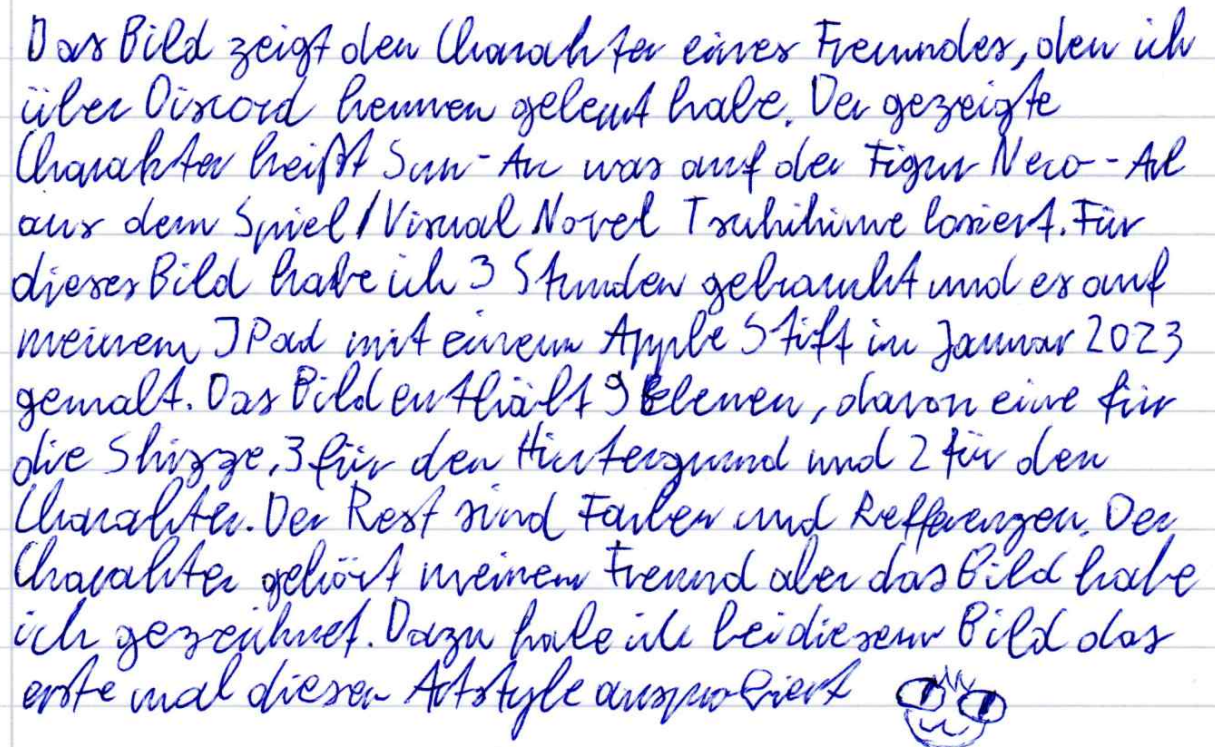 Das Bild zeigt den Charakter eines Freundes, den ich
über Discord kennen gelernt habe. Der gezeigte
Charakter heißt Sun-Arc was auf der Figur Neco-Arc
aus dem Spiel/Visual Novel Tsukihime basiert. Für
dieses Bild habe ich 3 Stunden gebraucht und es auf
meinem IPad mit einem Apple Stift im Januar 2023
gemalt. Das Bild enthält 9 Ebenen, davon eine für
die Skizze, 3 für den Hintergrund und 2 für den
Charakter. Der Rest sind Farben und Refferenzen. Der
Charakter gehört meinem Freund aber das Bild habe
ich gezeichnet. Dazu habe ich bei diesem Bild das
erste mal diesen Artstyle ausprobiert